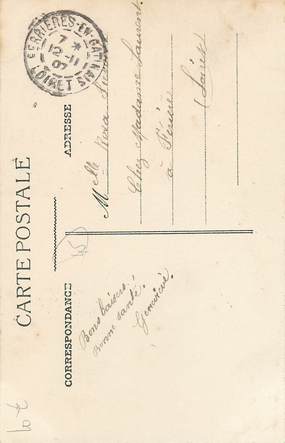 CARTE POSTALE
CORRESPONDANCE
ADRESSE
FERRIÈRES-EN-GATINAIS
7 *
12 -11
07
LOIRET
Bons baisers.
Bonne santé!
Geneviève.
Melle
Chez Madame Laurent
à Ferrières
(Loiret)